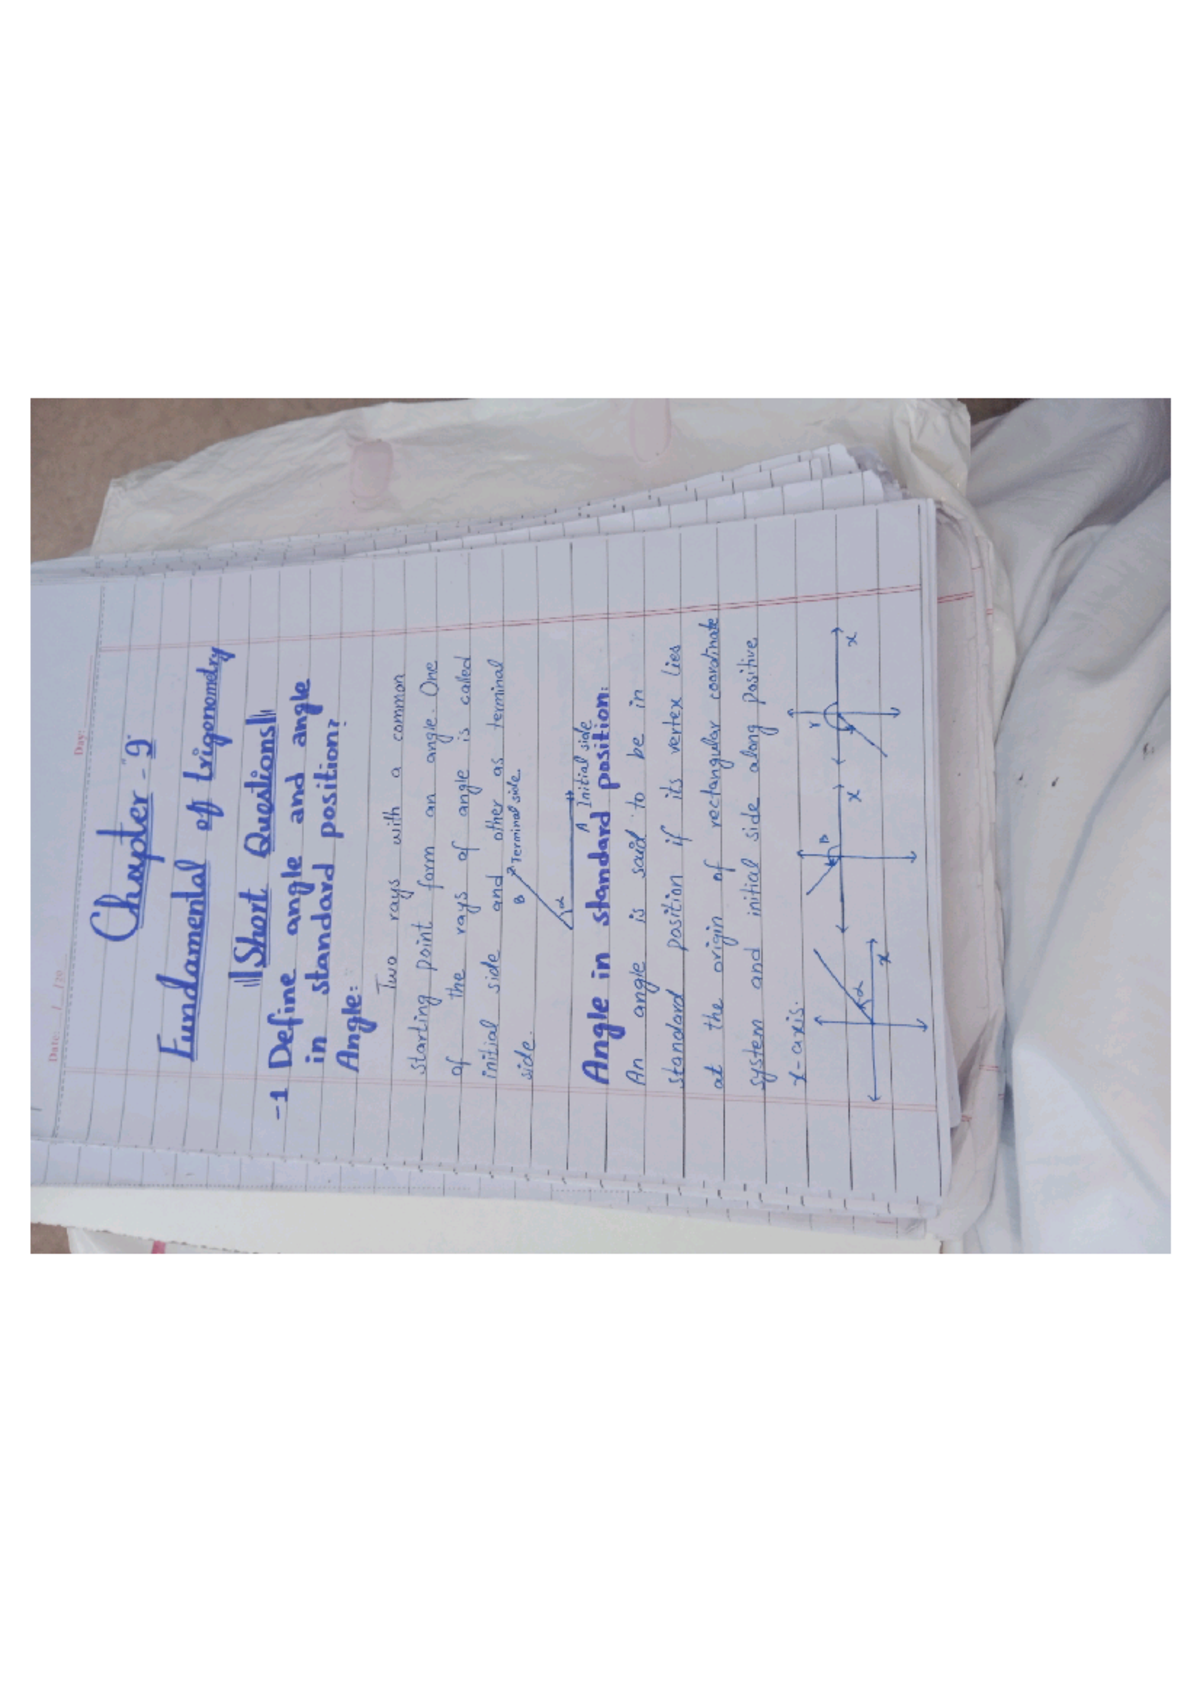 Date: __/__/20__ Day:
Chapter - 9
Fundamental of trigonometry
Short Questions
-1 Define angle and angle
in standard position?
Angle:
Two rays with a common
starting point form an angle. One
of the rays of angle is called
initial side and other as terminal
side.
B Terminal side
α
A Initial side
Angle in standard position:
An angle is said to be in
standard position if its vertex lies
at the origin of rectangular coordinate
system and initial side along positive
x-axis.
α x
x
x